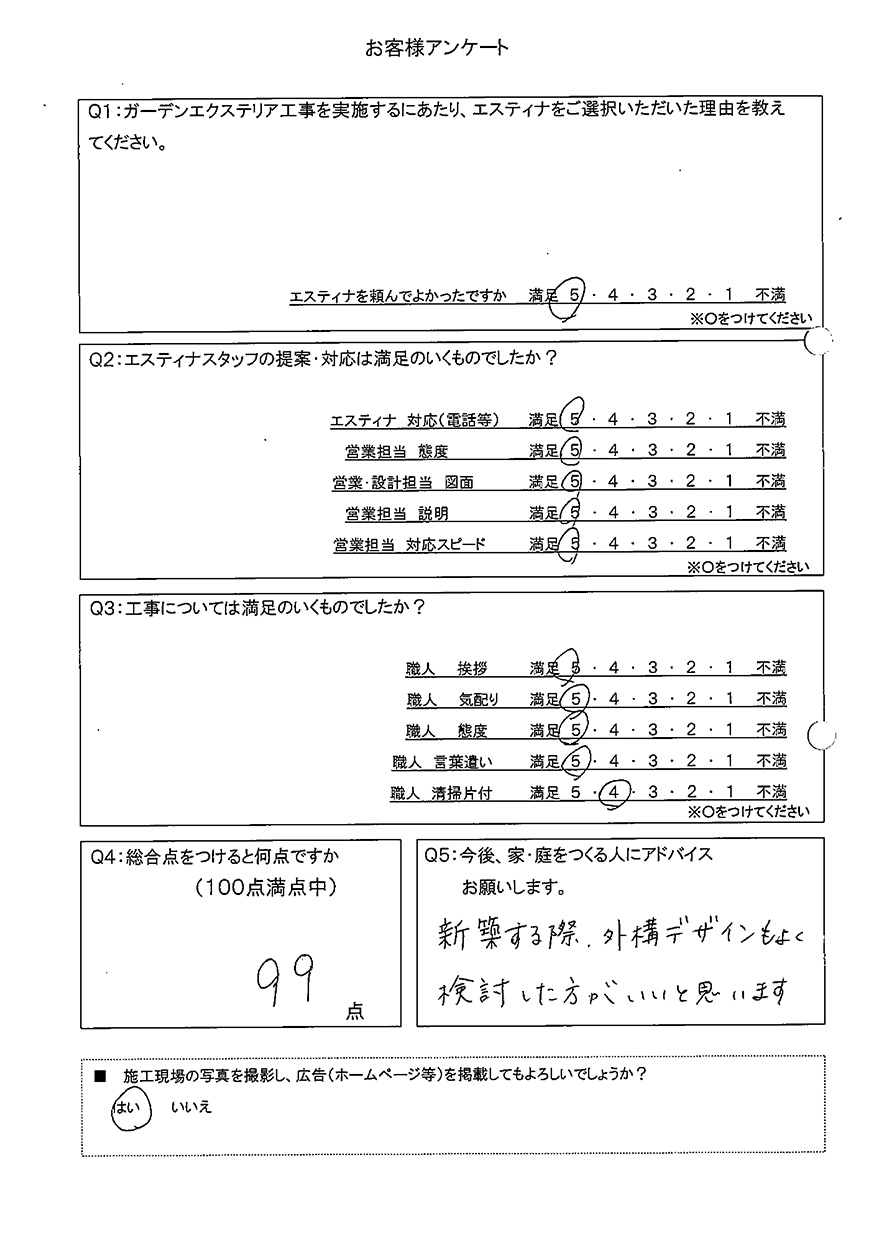 お客様アンケート
Q1:ガーデンエクステリア工事を実施するにあたり、エスティナをご選択いただいた理由を教え
てください。
エスティナを頼んでよかったですか 満足 5・4・3・2・1 不満
※○をつけてください
Q2:エスティナスタッフの提案・対応は満足のいくものでしたか?
エスティナ 対応(電話等) 満足 5・4・3・2・1 不満
営業担当 態度 満足 5・4・3・2・1 不満
営業・設計担当 図面 満足 5・4・3・2・1 不満
営業担当 説明 満足 5・4・3・2・1 不満
営業担当 対応スピード 満足 5・4・3・2・1 不満
※○をつけてください
Q3:工事については満足のいくものでしたか?
職人 挨拶 満足 5・4・3・2・1 不満
職人 気配り 満足 5・4・3・2・1 不満
職人 態度 満足 5・4・3・2・1 不満
職人 言葉遣い 満足 5・4・3・2・1 不満
職人 清掃片付 満足 5・4・3・2・1 不満
※○をつけてください
Q4:総合点をつけると何点ですか
(100点満点中)
99
点
Q5:今後、家・庭をつくる人にアドバイス
お願いします。
新築する際、外構デザインもよく
検討した方がいいと思います
■ 施工現場の写真を撮影し、広告(ホームページ等)を掲載してもよろしいでしょうか?
はい いいえ